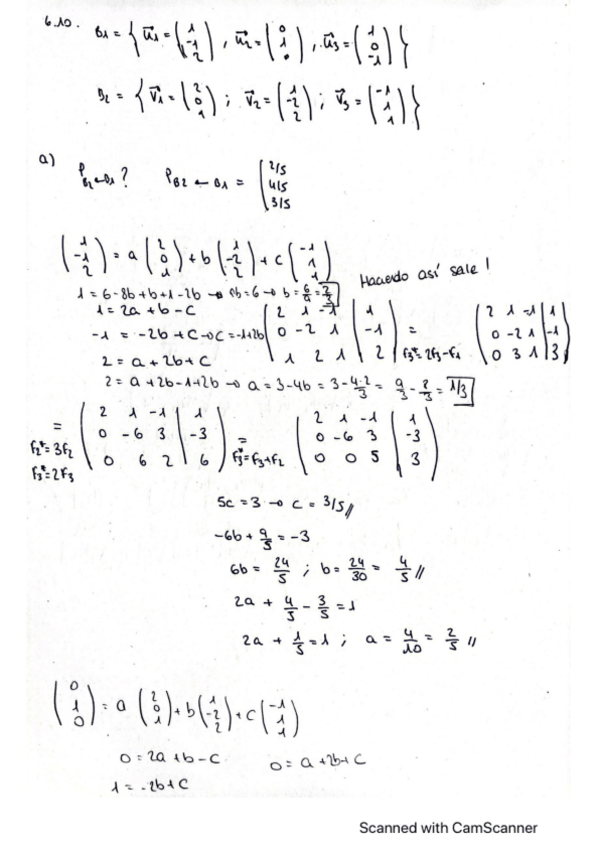 6.10. B1 = { u⃗1 = (1 -1 2), u⃗2 = (0 1 0), u⃗3 = (1 0 -1) }
B2 = { v⃗1 = (2 0 1); v⃗2 = (1 -2 2); v⃗3 = (-1 1 1) }
a) P B2←B1? P B2←B1 = ( 2/5 4/5 3/5
(1 -1 2) = a (2 0 1) + b (1 -2 2) + c (-1 1 1)
Haciendo así sale!
1 = 6-8b+b+1-2b → 9b=6 → b = 6/9 = 2/3
1 = 2a+b-c
-1 = -2b+c → c = -1+2b
2 = a+2b+c
2 = a+2b-1+2b → a = 3-4b = 3-4·2/3 = 9/3 - 8/3 = 1/3
( 2 1 -1 | 1 ) = ( 2 1 -1 | 1 )
( 0 -2 1 | -1 ) ( 0 -2 1 | -1 )
( 1 2 1 | 2 ) F3*=2F3-F1 ( 0 3 1 | 3 )
= ( 2 1 -1 | 1 ) = ( 2 1 -1 | 1 )
F2*=3F2 ( 0 -6 3 | -3 ) ( 0 -6 3 | -3 )
F3*=2F3 ( 0 6 2 | 6 ) F3*=F3+F2 ( 0 0 5 | 3 )
5c = 3 → c = 3/5 //
-6b + 9/5 = -3
6b = 24/5 ; b = 24/30 = 4/5 //
2a + 4/5 - 3/5 = 1
2a + 1/5 = 1 ; a = 4/10 = 2/5 //
(0 1 0) = a (2 0 1) + b (1 -2 2) + c (-1 1 1)
0 = 2a+b-c 0 = a+2b+c
1 = -2b+c
Scanned with CamScanner